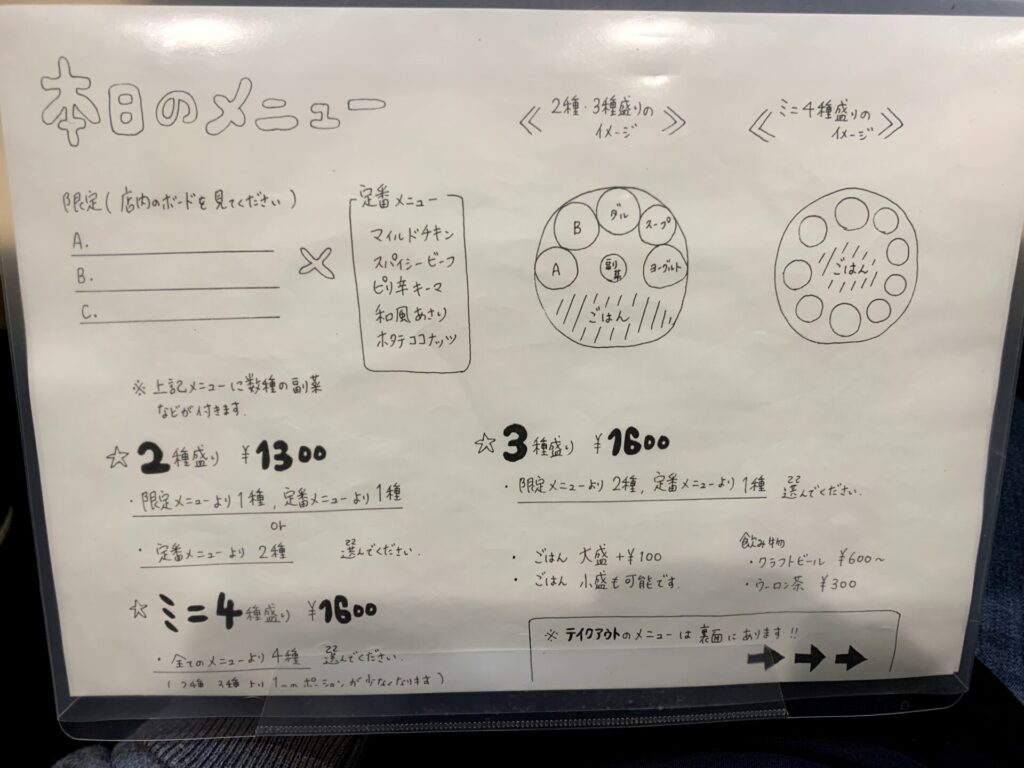 本日のメニュー
限定(店内のボードを見てください)
A.
B.
C.
×
定番メニュー
マイルドチキン
スパイシービーフ
ピリ辛キーマ
和風あさり
ホタテココナッツ
※上記メニューに数種の副菜
などが付きます.
≪2種・3種盛りの
イメージ≫
A
B
ダル
スープ
ヨーグルト
副菜
ごはん
≪ミニ4種盛りの
イメージ≫
ごはん
☆2種盛り ¥1300
・限定メニューより1種,定番メニューより1種
or
・定番メニューより2種 選んでください.
☆ミニ4種盛り ¥1600
・全てのメニューより4種 選んでください.
(2種、3種より1つのポーションが少なくなります)
☆3種盛り ¥1600
・限定メニューより2種,定番メニューより1種 選んでください.
・ごはん 大盛+¥100
・ごはん 小盛も可能です.
飲み物
・クラフトビール ¥600~
・ウーロン茶 ¥300
※テイクアウトのメニューは裏面にあります!!